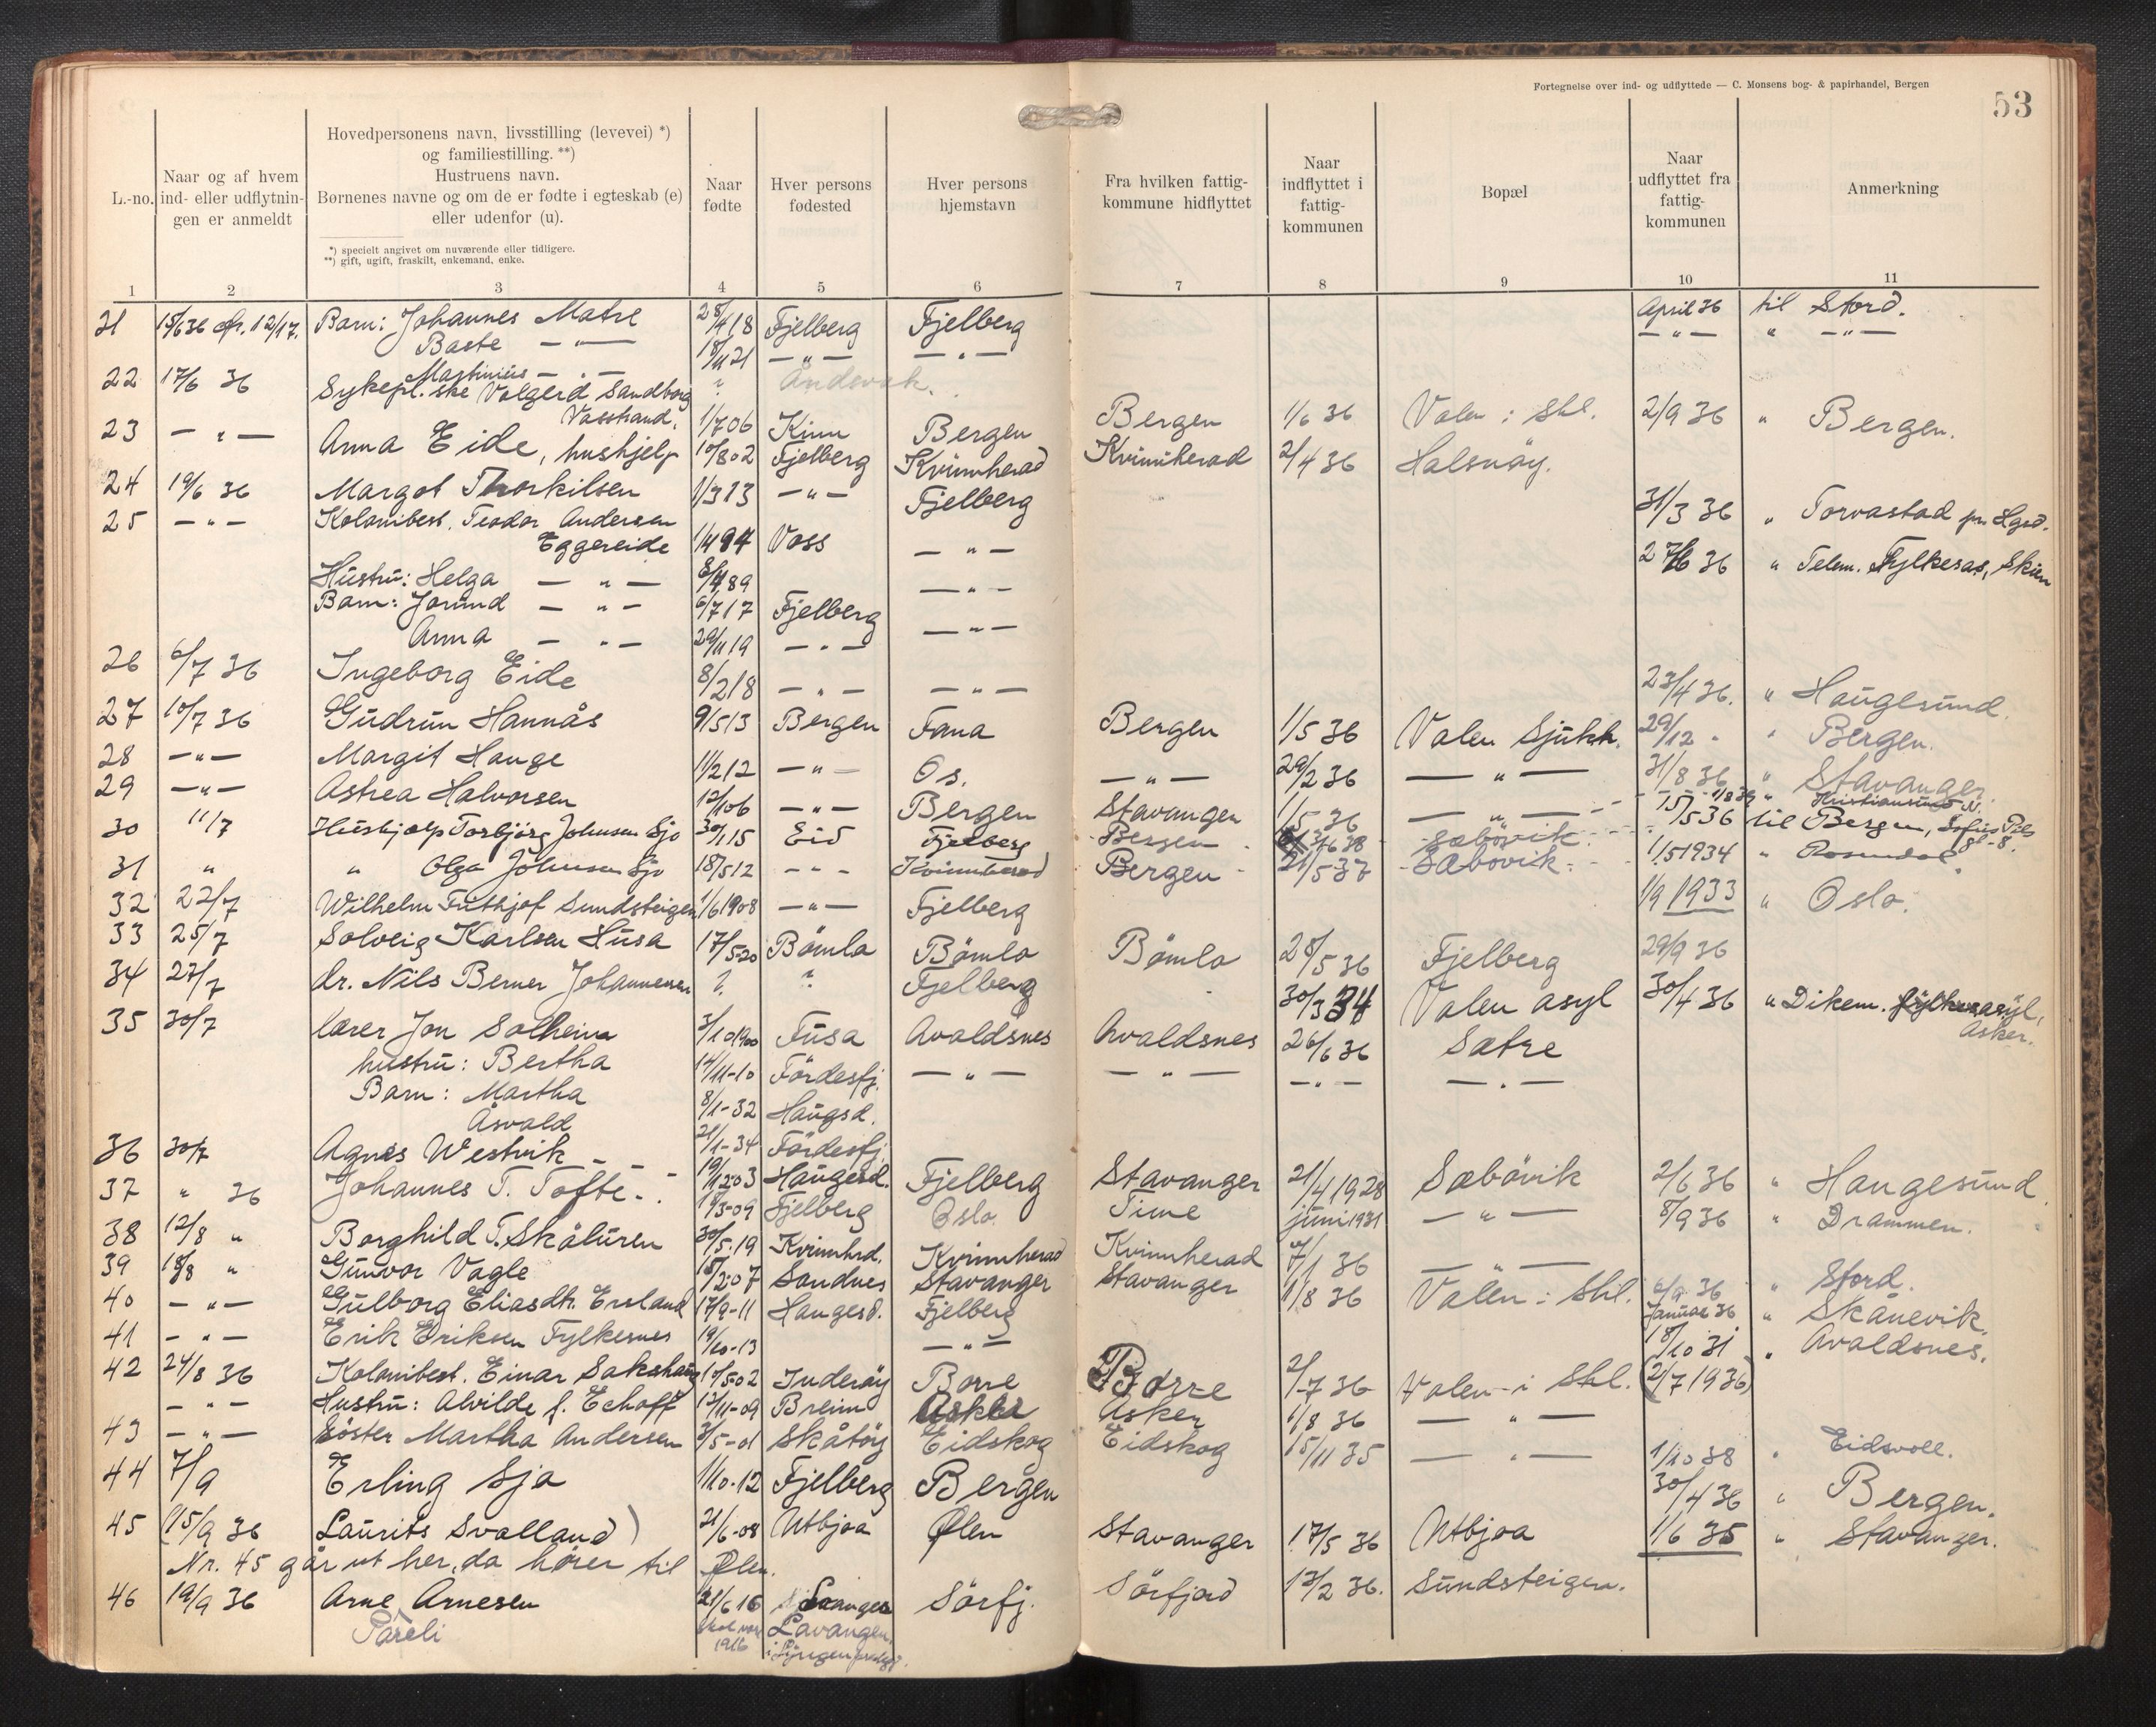 Fortegnelse over ind- og udflyttede — C. Monsens bog- & papirhandel, Bergen
53
L.-no.
Naar og af hvem ind- eller udflytnin- gen er anmeldt
Hovedpersonens navn, livsstilling (levevei) *)
og familiestilling. **)
Hustruens navn.
Børnenes navne og om de er fødte i egteskab (e)
eller udenfor (u).
*) specielt angivet om nuværende eller tidligere.
**) gift, ugift, fraskilt, enkemand, enke.
Naar fødte
Hver persons fødested
Hver persons hjemstavn
Fra hvilken fattig- kommune hidflyttet
Naar indflyttet i fattig- kommunen
Bopæl
Naar udflyttet fra fattig- kommunen
Anmerkning
1 2 3 4 5 6 7 8 9 10 11
21 15/6 36 Barn: Johannes Matre 28/4 18 Fjelberg Fjelberg April 36 til Stord.
Baste — " — 18/11 21 — " — — " — — " — " — " —
Martinius — " — ?
22 17/6 36 Sykepl.ske Valgerd Sandborg
Vasstrand. 1/7 06 Kinn Bergen Bergen 1/6 36 Valen : Shl. 2/9 36 " Bergen.
23 — " — Anna Eide, hushjelp 10/8 02 Fjelberg Kvinnherad Kvinnherad 2/4 36 Halsnøy.
24 19/6 36 Margot Thorkilsen 1/3 13 — " — Fjelberg 31/3 36 " Torvastad pr. Hgsd.
25 — " — Kolonibest. Teodor Andersen
Eggereide 1/4 94 Voss — " — 27/6 36 " Telem. Fylkesas, Skien
Hustru: Helga — " — 8/4 89 — " —
Barn: Jorund — " — 6/7 17 Fjelberg
Anna — " — 29/11 19 — " — — " —
26 6/7 36 Ingeborg Eide 8/2 18 — " — — " — 23/4 36. " Haugesund.
27 10/7 36 Gudrun Hannås 9/5 13 Bergen Fana Bergen 1/5 36 Valen Sjukh. 29/12 " " Bergen.
28 — " — Margit Hauge 11/2 12 — " — Os. — " — 29/2 36 — " — 31/8 36 " Stavanger.
29 — " — Astrea Halvorsen 12/1 06 — " — Bergen Stavanger 1/5 36 — " — Kristiansund N.
30 11/7 Hushjælp Torbjørg Johnsen Sjo 30/1 15 Eid Fjelberg Bergen Sæbövik 15/5 36 til Bergen,
31 " " Olga Johnsen Sjo 18/5 12 — " — Kvinnherad Bergen 21/5 37 Sæbovik. 1/5 1934 " Rosendal
32 22/7 Wilhelm Frithjof Sundsteigen 1/6 1908 — " — Fjelberg 1/9 1933 " Oslo.
33 25/7 Solveig Karlsen Husa 17/5-20 Bömlo Bömlo Bömlo 28/5 36 Fjelberg 29/9 36
34 27/7 dr. Nils Berner Johannesen ? ? Fjelberg 30/3 34 Valen asyl 30/4 36 " Dikem. fylkesasyl,
Asker.
35 30/7 lærer Jon Solheim 3/10 1900 Fusa Avaldsnes Avaldsnes 26/6 36 Sætre
hustru: Bertha 14/11-10 Fördesfj. — " — — " — — " — — " —
Barn: Martha 8/1-32 Haugsd.
Åsvald 21/1-34 Fördesfj.
36 30/7 Agnes Westvik 19/12 03 Haugesd. Fjelberg Stavanger 21/4 1928 Sæbövik 2/6 36 " Haugesund.
37 " 36 Johannes T. Tofte 18/3-09 Fjelberg Oslo Time juni 1931 — " — 8/9 36 " Drammen.
38 12/8 " Borghild T. Skåluren 30/5-19 Kvinnhrd. Kvinnherad Kvinnherad 7/1 36 — " —
39 18/8 " Gunvor Vagle 15/2-07 Sandnes Stavanger Stavanger 1/8 36 Valen : Shl. 6/9 36 " Stord.
40 — " — Gulborg Eliasdtr. Ersland 17/9-11 Haugesd. Fjelberg Januar 36 " Skånevik.
41 — " — Erik Eriksen Fylkesnes 19/10-13 — " — 18/10 31 " Avaldsnes.
42 24/8 36 Kolonibest. Einar Sakshaug 10/5-02 Inderöy Borre Borre 2/7 36 Valen i Shl. (2/7 1936)
— " — Hustru: Alvilde f. Echoff 13/11-09 Breim Asker Asker 1/8 36 — " —
43 — " — Söster Martha Andersen 3/5-01 Skåtöy Eidskog Eidskog 15/11 35 — " — 1/10 38 " Eidsvoll.
44 7/9 Erling Sjo 1/10-12 Fjelberg Bergen 30/4 36 " Bergen.
45 (15/9 36 Laurits Svolland) 21/6-08 Utbjoa Ølen Stavanger 17/5 36 Utbjoa 1/6 35 " Stavanger.
Nr. 45 går ut her, da hører til Ølen.
46 19/9 36 Arne Arnesen 21/6 16 Sörfj. Sörfjord 13/2 36. Sundsteigen.
Pareli 1916 Lavangen